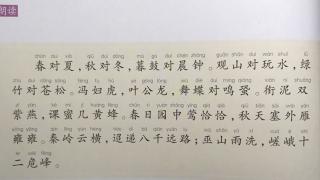 朗读
chūn duì xià qiū duì dōng mù gǔ duì chén zhōng guān shān duì wán shuǐ lǜ
春对夏，秋对冬，暮鼓对晨钟。观山对玩水，绿
zhú duì cāng sōng féng fù hǔ yè gōng lóng wǔ dié duì míng qióng xián ní shuāng
竹对苍松。冯妇虎，叶公龙，舞蝶对鸣蛩。衔泥双
zǐ yàn kè mì jǐ huáng fēng chūn rì yuán zhōng yīng qià qià qiū tiān sài wài yàn
紫燕，课蜜几黄蜂。春日园中莺恰恰，秋天塞外雁
yōng yōng qín lǐng yún héng tiáo dì bā qiān yuǎn lù wū shān yǔ xǐ cuó é shí
雍雍。秦岭云横，迢递八千远路；巫山雨洗，嵯峨十
èr wēi fēng
二危峰。